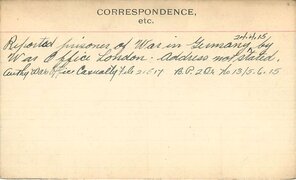 CORRESPONDENCE,
etc.
24.4.15
Reported prisoner of War in Germany by
War Office London. Address not stated.
Authy War Office Casualty File 21517 B.P. 2 Dr. No 13/5.6.15